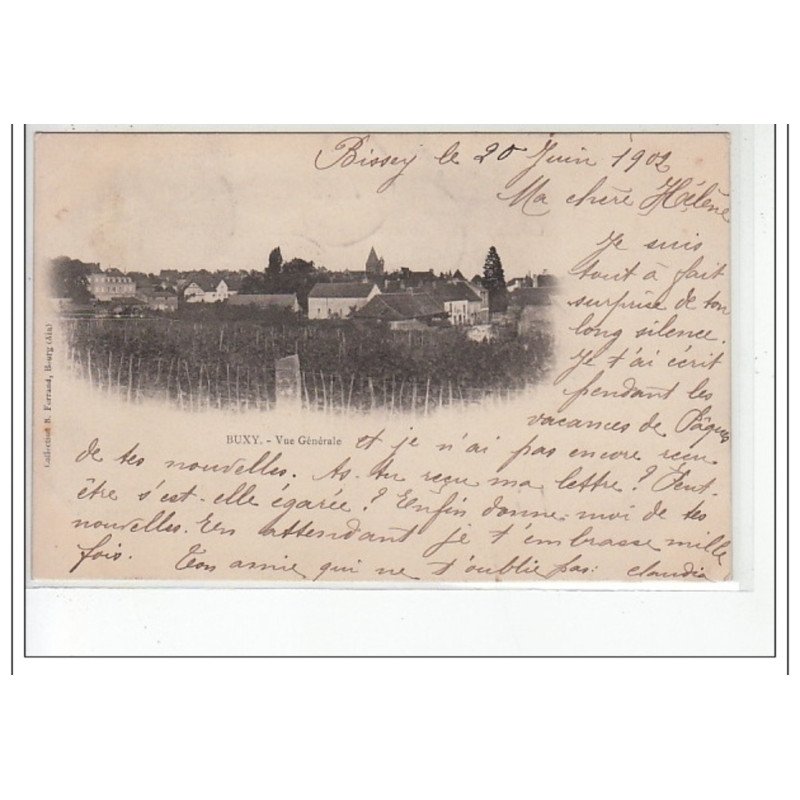 Bissey le 20 Juin 1902
Ma chère Hélène
Je suis
tout à fait
surprise de ton
long silence.
Je t'ai écrit
pendant les
vacances de Pâques
et je n'ai pas encore reçu
de tes nouvelles. As-tu reçu ma lettre? Peut-
être s'est-elle égarée? Enfin donne-moi de tes
nouvelles. En attendant je t'embrasse mille
fois. Ton amie qui ne t'oublie pas: Claudia
BUXY. - Vue Générale
Collection B. Ferrand, Bourg (Ain)